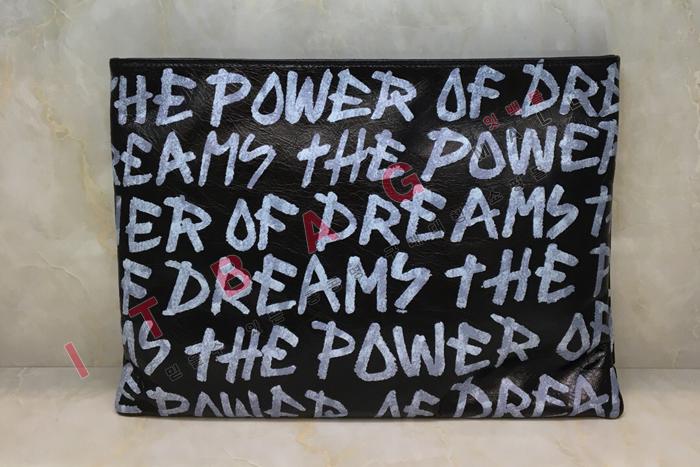 THE POWER OF DRE
REAMS THE POWER
ER OF DREAMS T
E DREAMS THE P
MS THE POWER OF
E POWER OF DREA
ITBAG